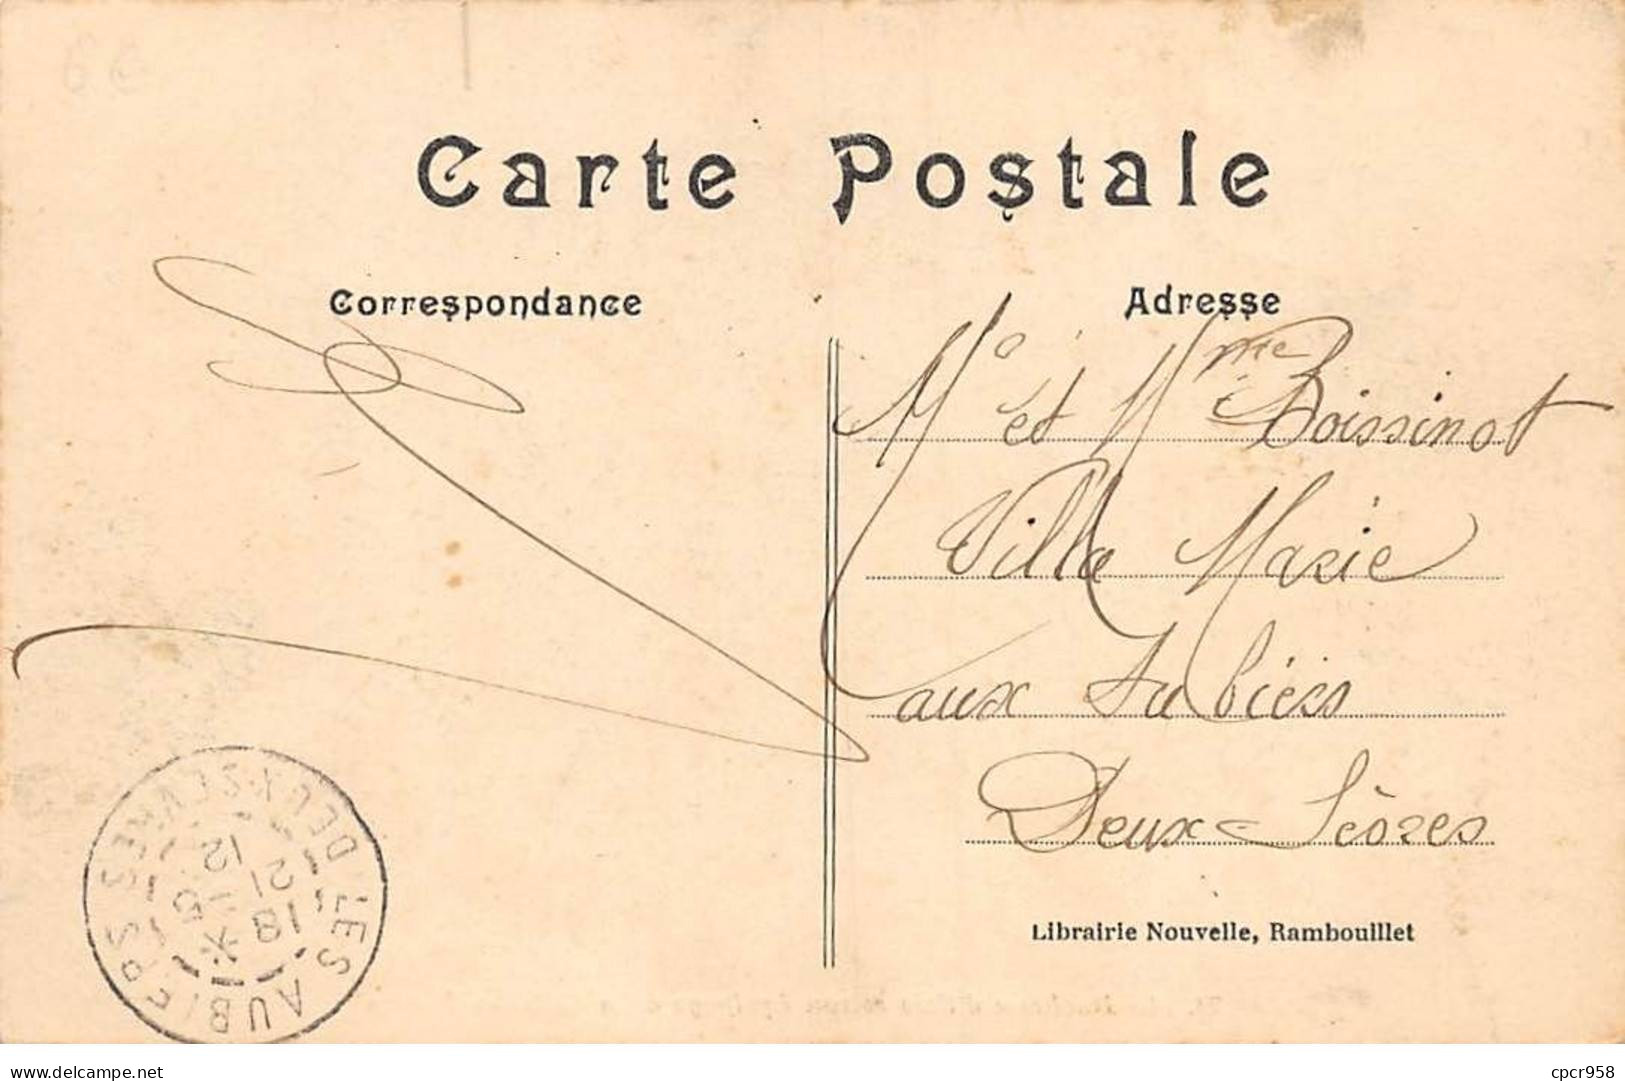 Carte Postale
Correspondance
Adresse
Mr et Mme Boissinot
Villa Marie
aux Aubiers
Deux-Sèvres
LES AUBIERS
DEUX-SEVRES
18
21
12
Librairie Nouvelle, Rambouillet
www.delcampe.net
cpcr958